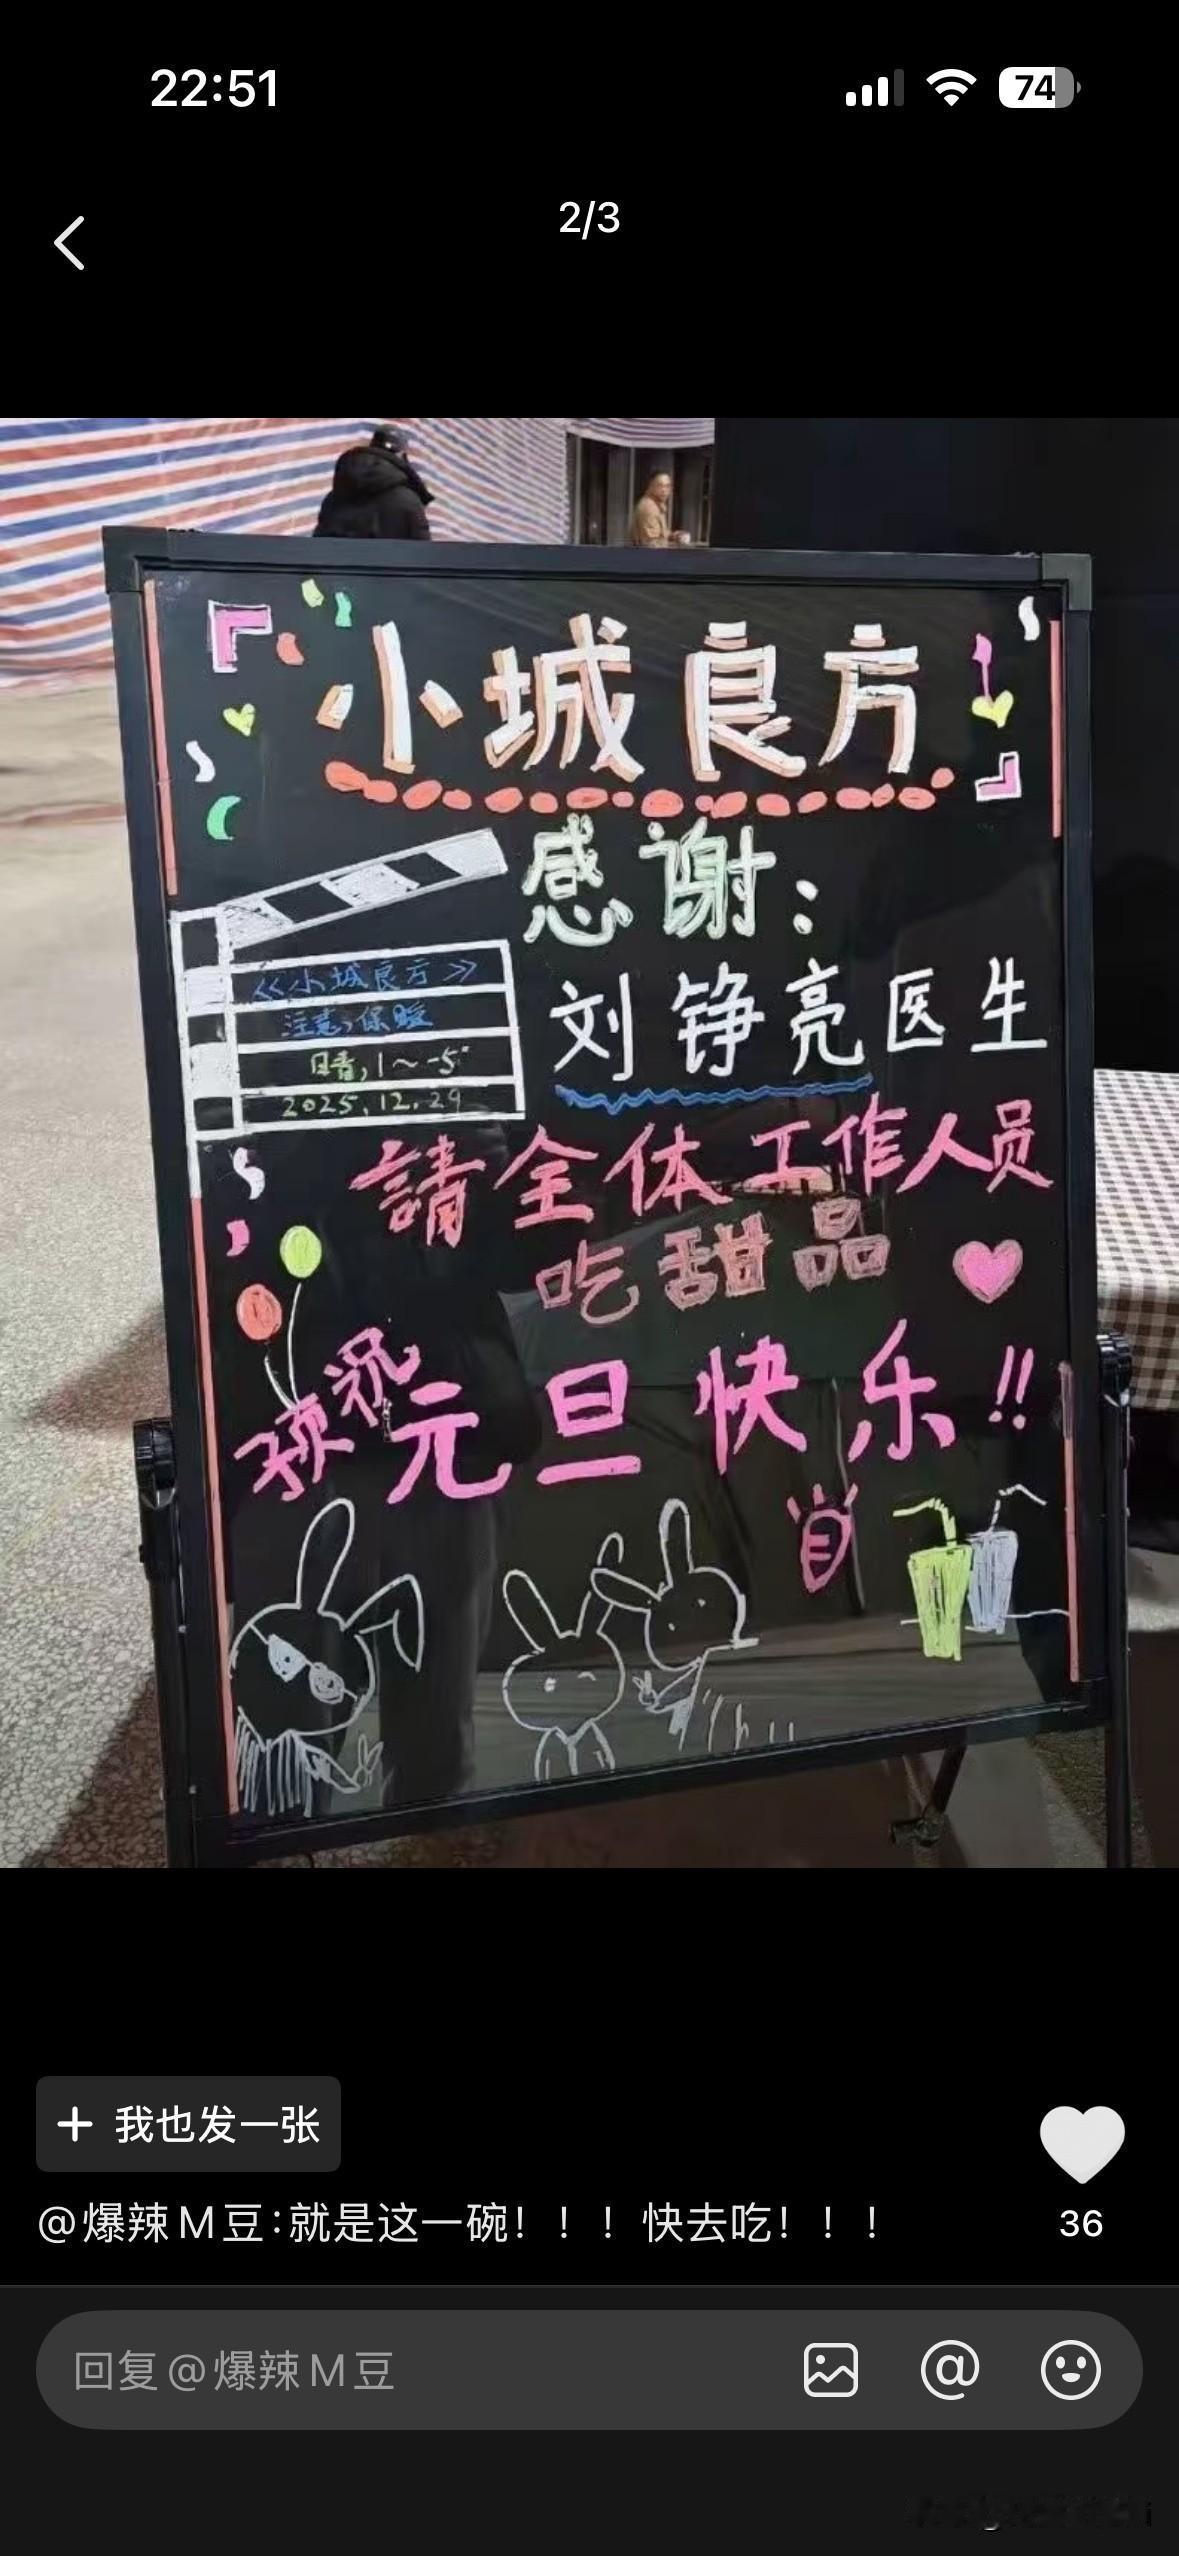 22:51
74
2/3
小城良方
感谢：
《小城良方》
注意，保暖
日青，1～-5°
2025.12.29
刘铮亮医生
請全体工作人员
吃甜品
预祝
元旦快乐!!
+ 我也发一张
@爆辣M豆：就是这一碗！！！快去吃！！！
36
回复@爆辣M豆